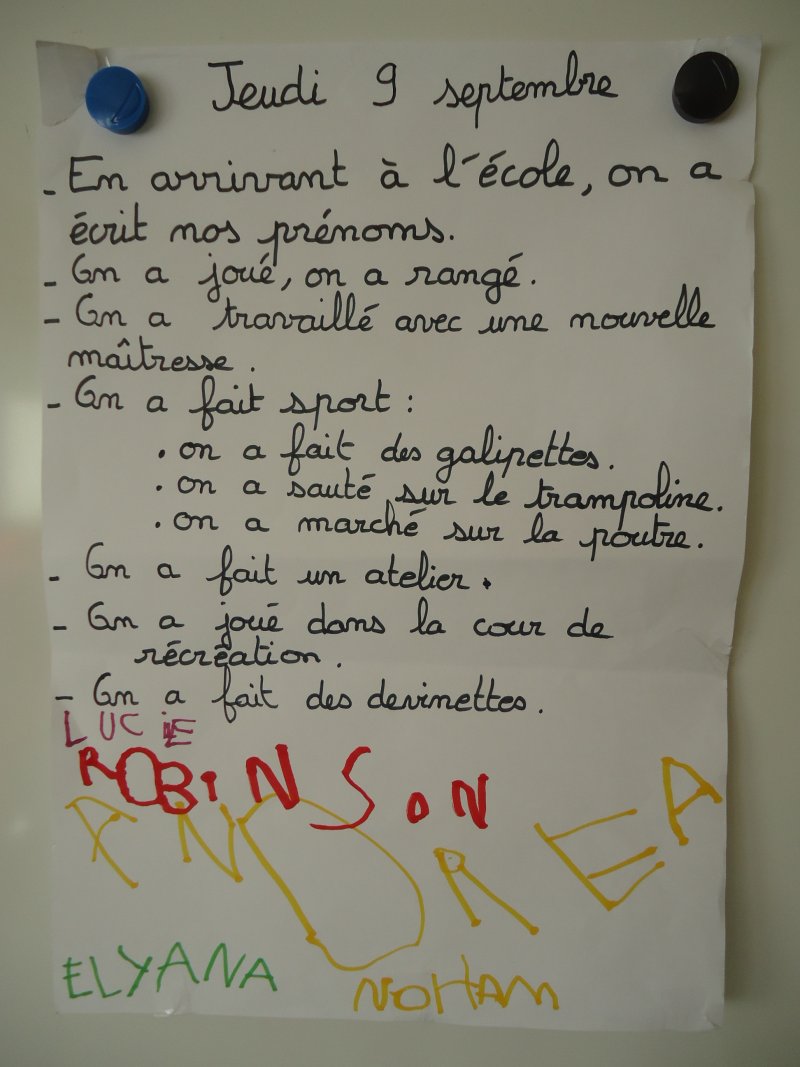 Jeudi 9 septembre
- En arrivant à l'école, on a
écrit nos prénoms.
- On a joué, on a rangé.
- On a travaillé avec une nouvelle
maîtresse.
- On a fait sport :
. on a fait des galipettes.
. on a sauté sur le trampoline.
. on a marché sur la poutre.
- On a fait un atelier.
- On a joué dans la cour de
récréation.
- On a fait des devinettes.
LUCIE
ROBINSON
ANDREA
ELYANA
NOHAM